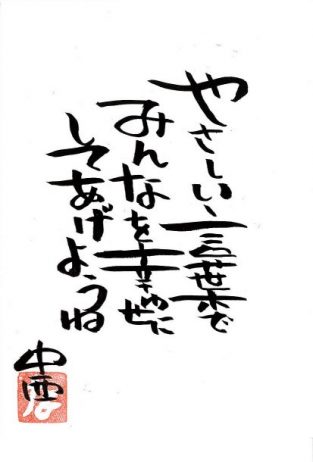 やさしい言葉で
みんなを幸せに
してあげようね
中西